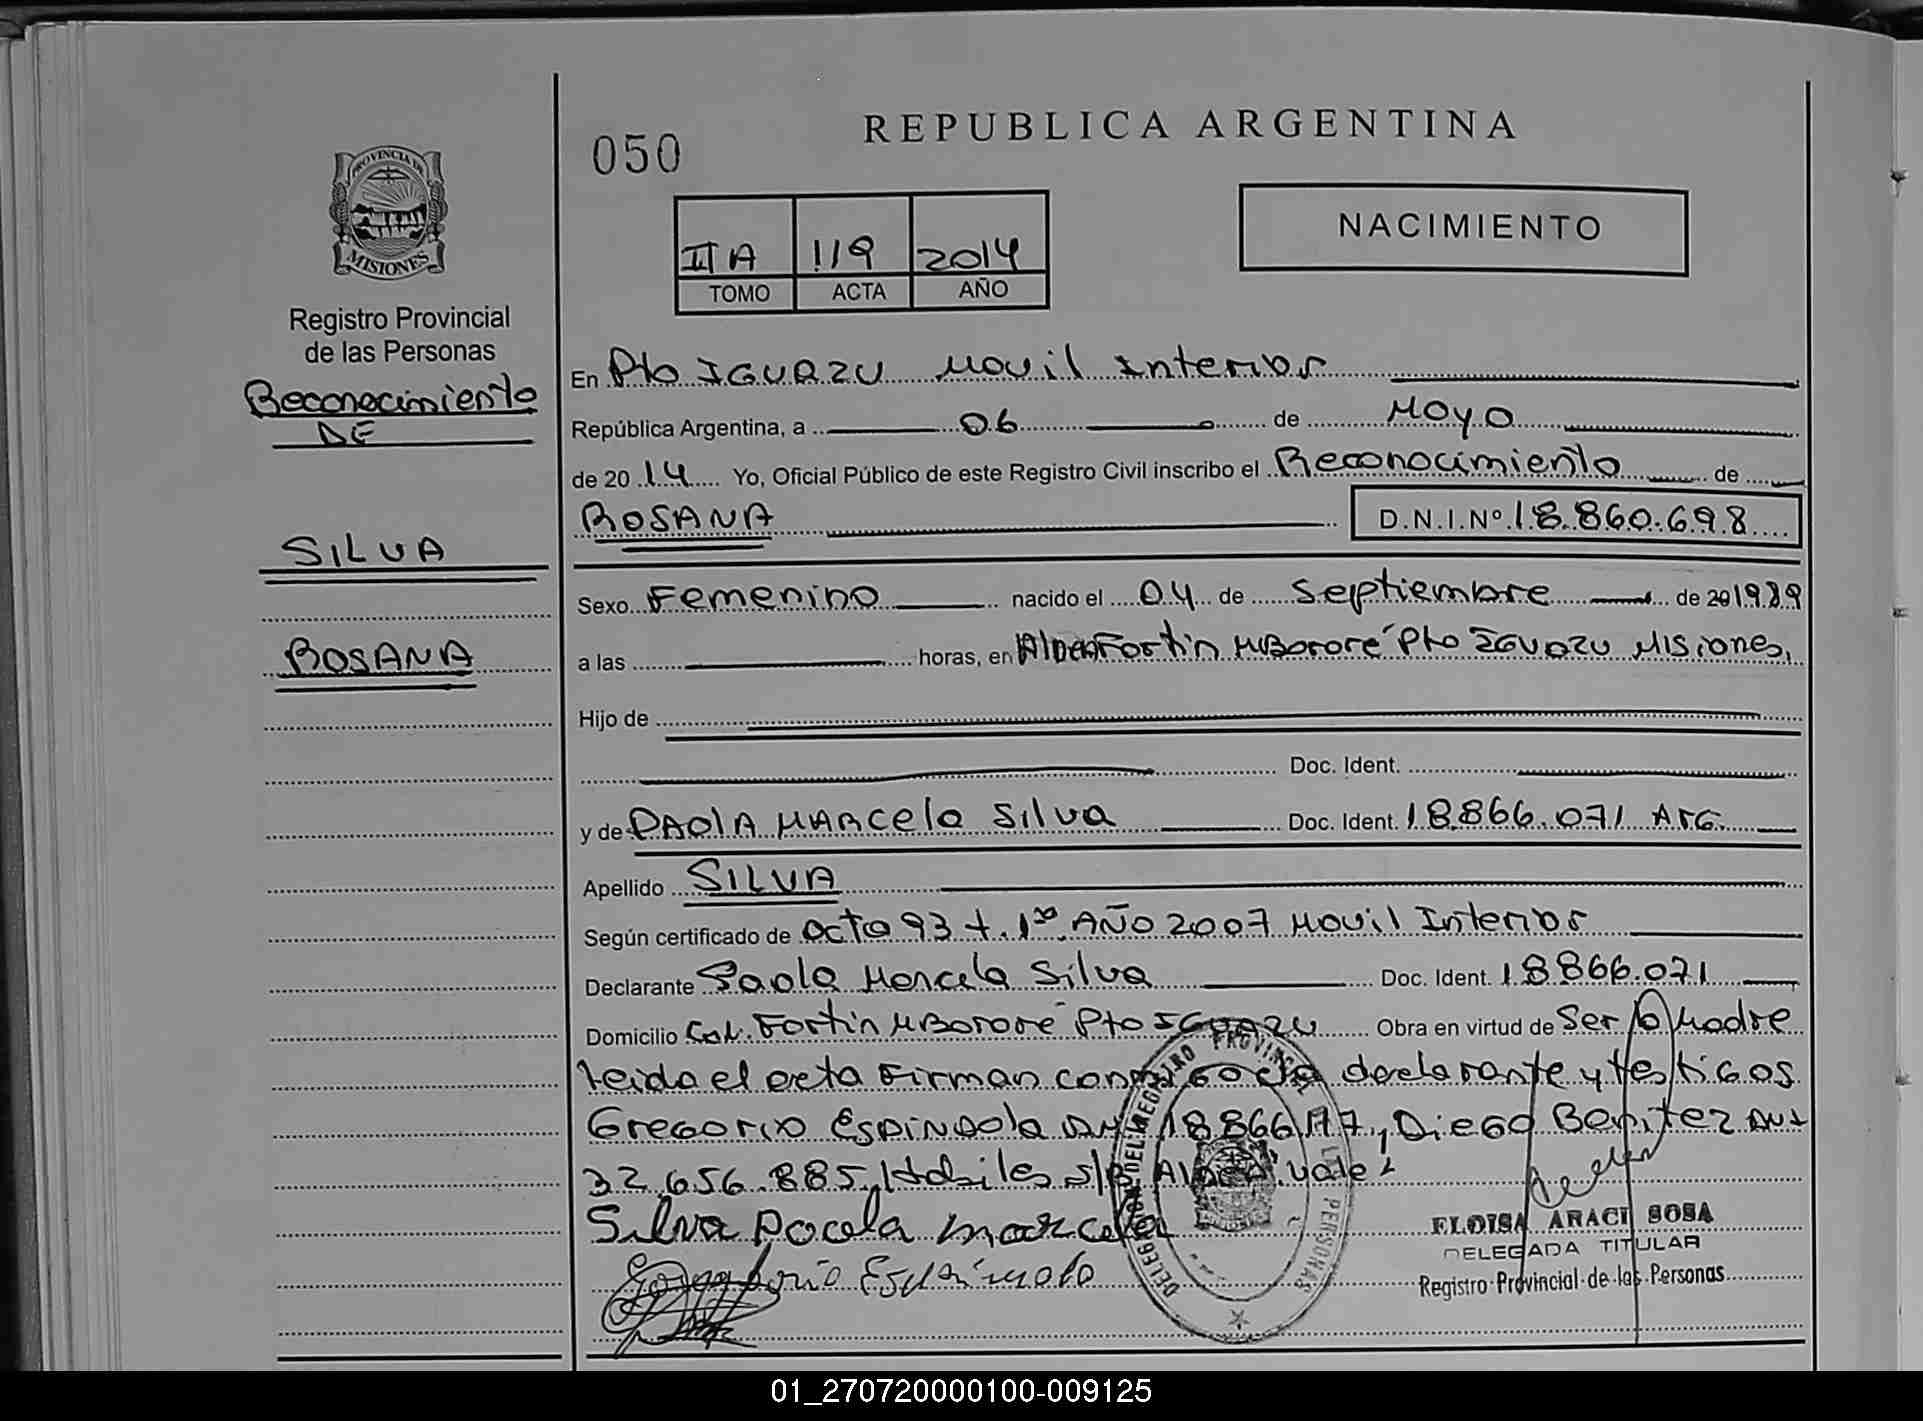 REPUBLICA ARGENTINA
050
NACIMIENTO
PROVINCIA DE
MISIONES
II A 119 2014
TOMO ACTA AÑO
Registro Provincial
de las Personas
Reconocimiento
DE
SILVA
ROSANA
En Pto IGUAZU Movil Interior
República Argentina, a 06 de Mayo
de 2014 Yo, Oficial Público de este Registro Civil inscribo el Reconocimiento de
ROSANA D.N.I.Nº 18.860.698
Sexo Femenino nacido el 04 de Septiembre de 20 1989
a las horas, en Aldea Fortin MBororé Pto IGUAZU Misiones,
Hijo de
Doc. Ident.
y de PAOLA MARCela Silva Doc. Ident. 18.866.071 ARG.
Apellido SILVA
Según certificado de acta 93 t. 1º AÑO 2007 Movil Interior
Declarante Paola Marcela Silva Doc. Ident. 18.866.071
Domicilio Col. Fortin MBororé Pto IGUAZU Obra en virtud de Ser la Madre
Leida el acta Firman conmigo la declarante y testigos
Gregorio Espindola DNI Diego Benitez DNI
32.656.885 Habiles s/B Aldea vale
Silva Paola marcela
Espindola
DELEGACION DEL REGISTRO PROVINCIAL DE LAS PERSONAS
ELOISA ARACI SOSA
DELEGADA TITULAR
Registro Provincial de las Personas
01_270720000100-009125